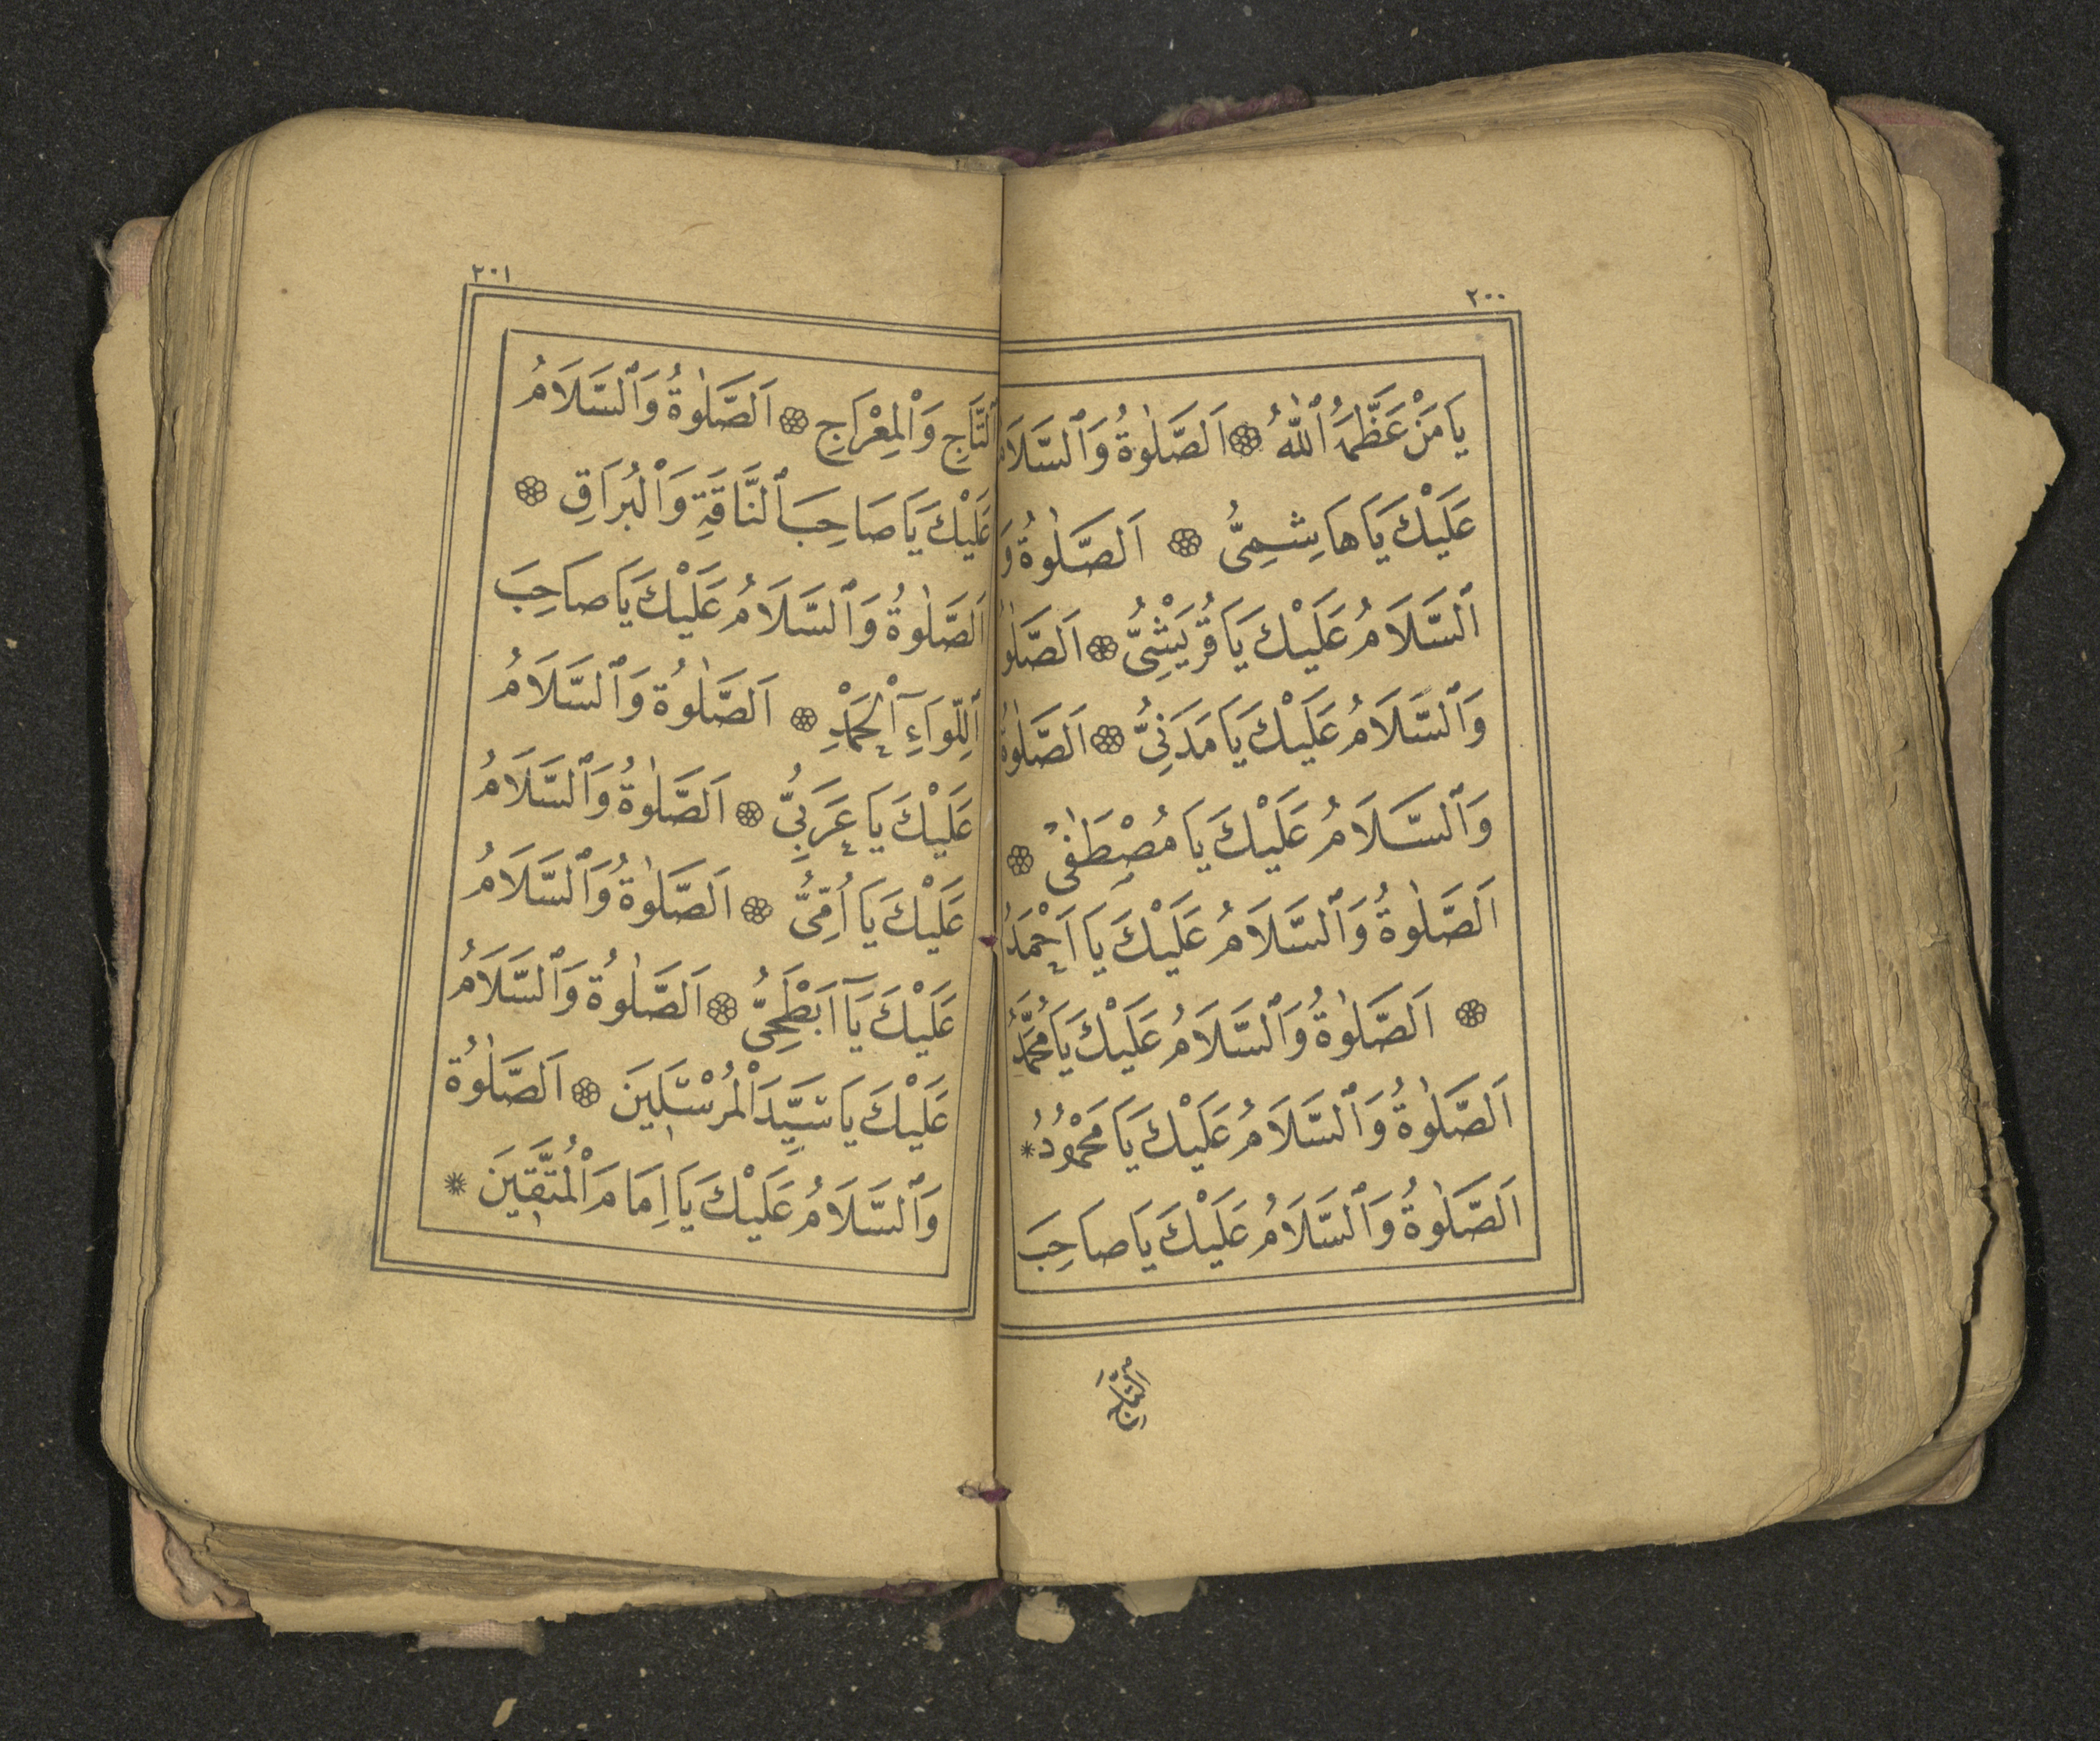 ٢٠٠
يَا مَنْ عَظَّمَهُ ٱللّٰهُ ۞ اَلصَّلٰوةُ وَٱلسَّلَامُ
عَلَيْكَ يَا هَاشِمِىُّ ۞ اَلصَّلٰوةُ وَ
ٱلسَّلَامُ عَلَيْكَ يَا قُرَيْشِىُّ ۞ اَلصَّلٰوةُ
وَٱلسَّلَامُ عَلَيْكَ يَا مَدَنِىُّ ۞ اَلصَّلٰوةُ
وَٱلسَّلَامُ عَلَيْكَ يَا مُصْطَفٰى ۞
اَلصَّلٰوةُ وَٱلسَّلَامُ عَلَيْكَ يَا اَحْمَدُ
۞ اَلصَّلٰوةُ وَٱلسَّلَامُ عَلَيْكَ يَا مُحَمَّدُ
اَلصَّلٰوةُ وَٱلسَّلَامُ عَلَيْكَ يَا مَحْمُودُ *
اَلصَّلٰوةُ وَٱلسَّلَامُ عَلَيْكَ يَا صَاحِبَ
التَّاجِ
٢٠١
ٱلتَّاجِ وَٱلْمِعْرَاجِ ۞ اَلصَّلٰوةُ وَٱلسَّلَامُ
عَلَيْكَ يَا صَاحِبَ ٱلنَّاقَةِ وَٱلْبُرَاقِ ۞
اَلصَّلٰوةُ وَٱلسَّلَامُ عَلَيْكَ يَا صَاحِبَ
ٱللِّوَآءِ ٱلْحَمْدِ ۞ اَلصَّلٰوةُ وَٱلسَّلَامُ
عَلَيْكَ يَا عَرَبِىُّ ۞ اَلصَّلٰوةُ وَٱلسَّلَامُ
عَلَيْكَ يَا اُمِّىُّ ۞ اَلصَّلٰوةُ وَٱلسَّلَامُ
عَلَيْكَ يَآ اَبْطَحِىُّ ۞ اَلصَّلٰوةُ وَٱلسَّلَامُ
عَلَيْكَ يَا سَيِّدَ ٱلْمُرْسَلِينَ ۞ اَلصَّلٰوةُ
وَٱلسَّلَامُ عَلَيْكَ يَا اِمَامَ ٱلْمُتَّقِينَ *